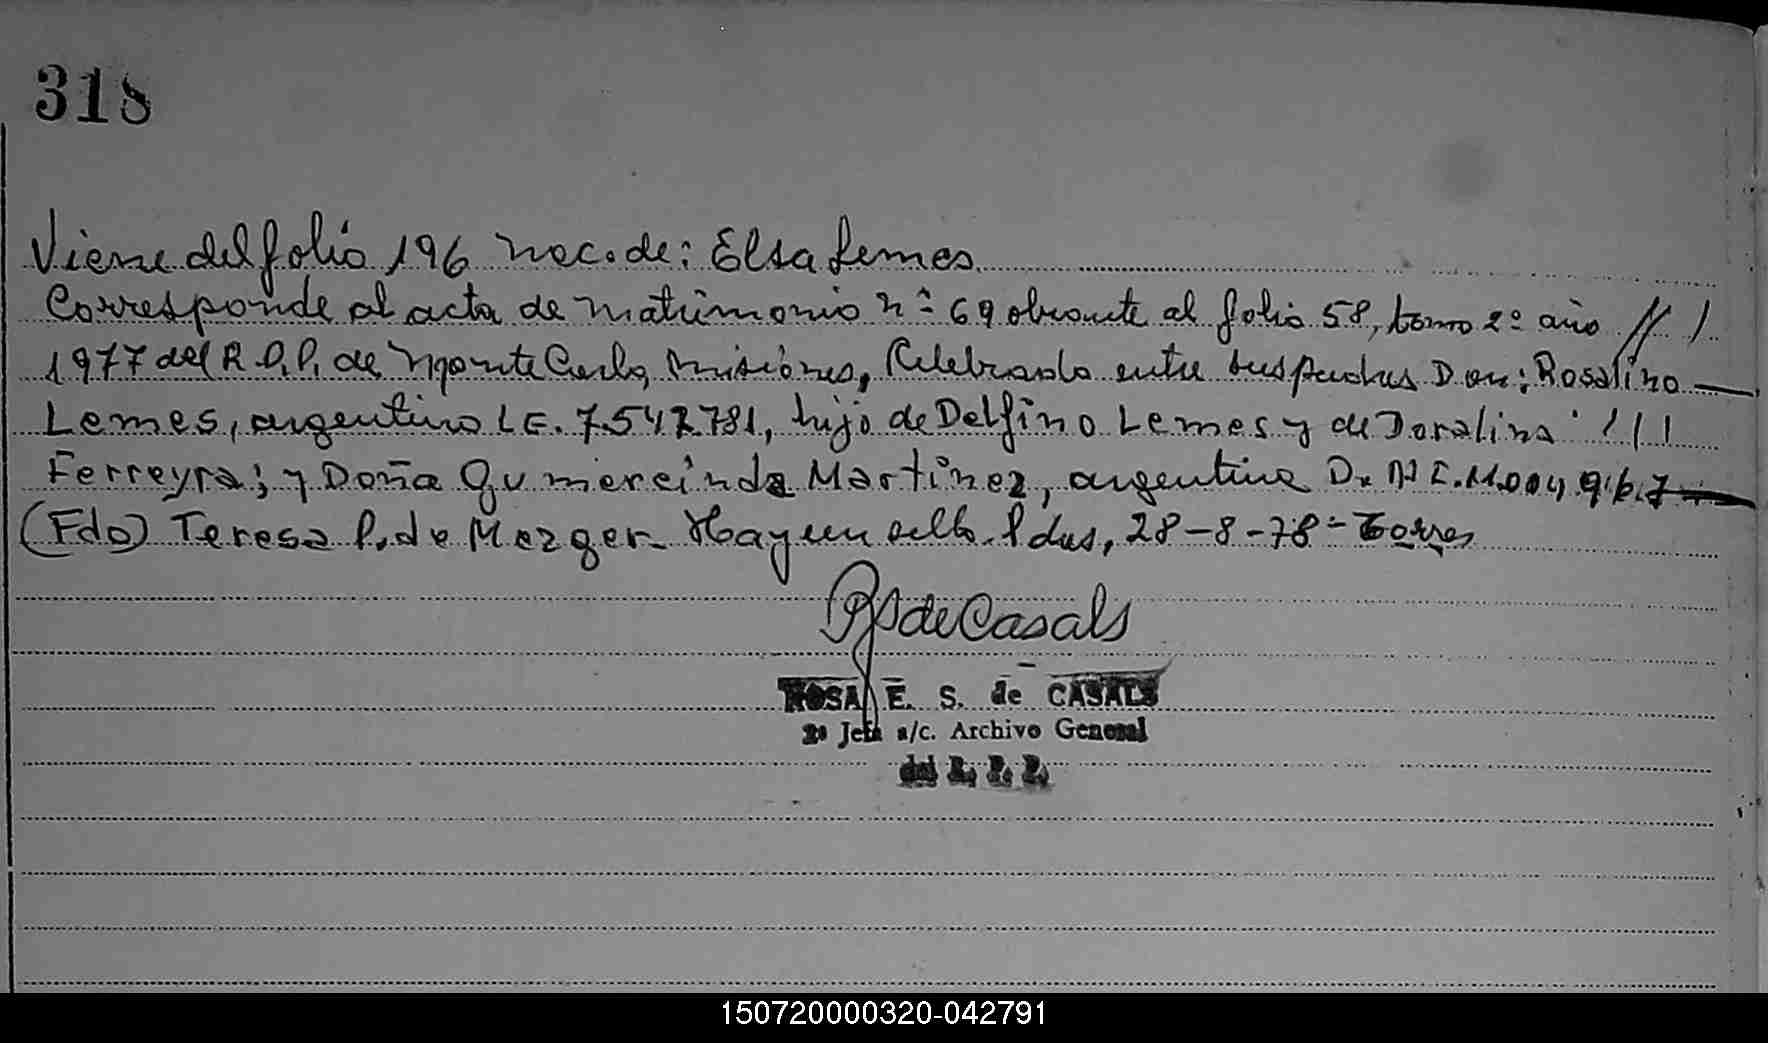 318
Viene del folio 196 nac. de: Elsa Lemes
Corresponde al acta de matrimonio nº 69 obrante al folio 58, tomo 2º año // /
1977 del R.P.P. de Monte Carlo, Misiones, Celebrado entre sus padres Don: Rosalino —
Lemes, argentino L E. 7.547.781, hijo de Delfino Lemes y de Doralina / / /
Ferreyra; y Doña Gumercinda Martinez, argentina D. N I.
(Fdo) Teresa P. de Mezger - Hay un sello. Pdas, 28-8-78 - Torres
RS de Casals
ROSA E. S. de CASALS
2ª Jefa a/c. Archivo General
del R. P. P.
150720000320-042791